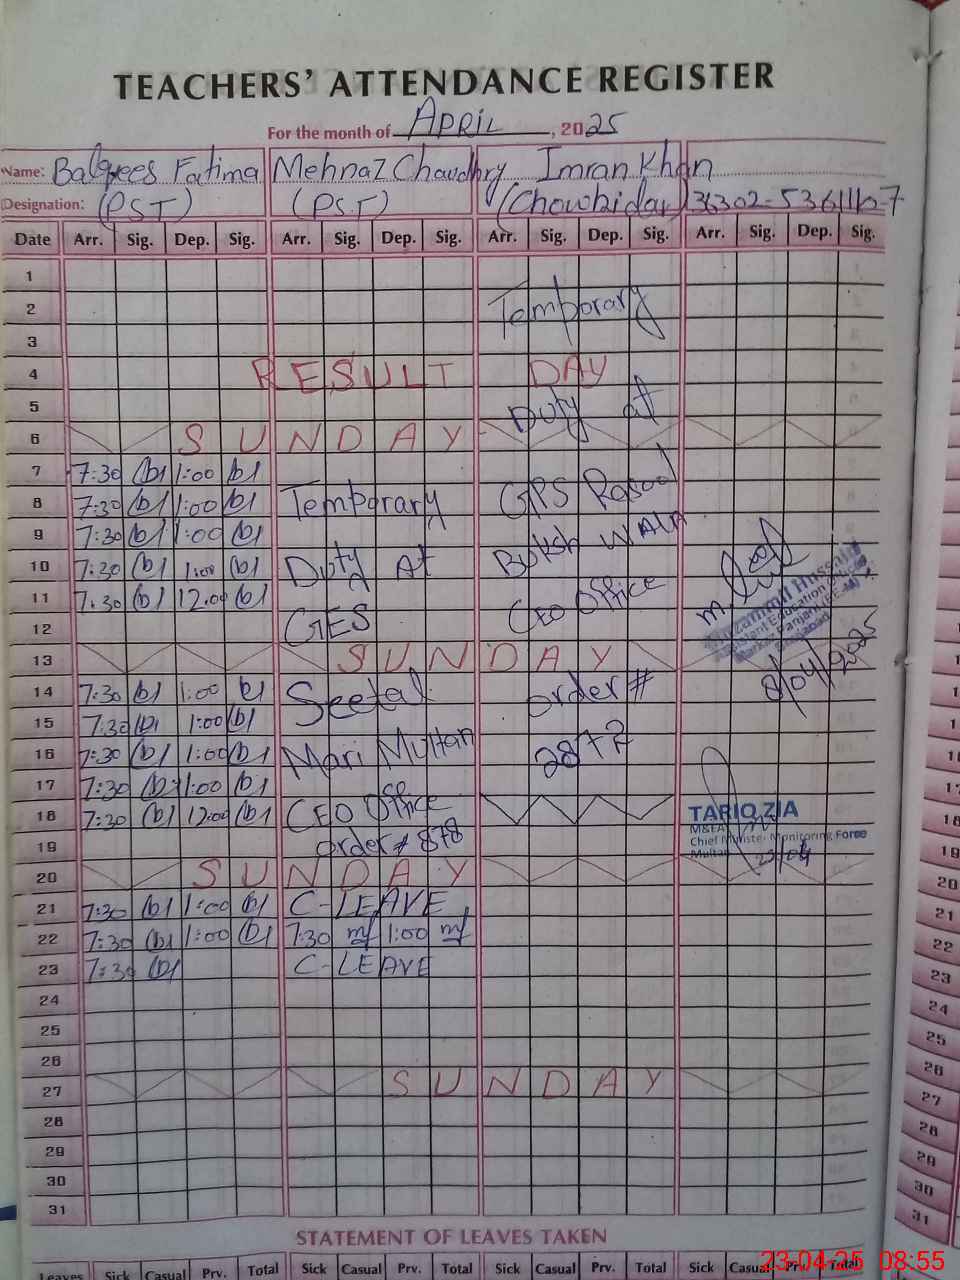 TEACHERS' ATTENDANCE REGISTER
For the month of APRIL, 2025
Name: Balqees Fatima Mehnaz Chawdhry Imran Khan
Designation: (PST) (P.S.T) (Chowkidar) 36302-536116-7
Date Arr. Sig. Dep. Sig. Arr. Sig. Dep. Sig. Arr. Sig. Dep. Sig. Arr. Sig. Dep. Sig.
1
2 Temporary
3
4 RESULT DAY
5 Duty at
6 SUNDAY
7 7:30 (b) 1:00 (b)
8 7:30 (b) 1:00 (b) Temporary GPS Rasool
9 7:30 (b) 1:00 (b) Buksh WALA
10 7:30 (b) 1:00 (b) Duty At
11 7:30 (b) 12:00 (b) CEO Office
12 GES
13 SUNDAY
Muzammil Hussain
Assistant Education Officer
8/04/2025
14 7:30 (b) 1:00 (b) Seetal order #
15 7:30 (b) 1:00 (b)
16 7:30 (b) 1:00 (b) Mari Multan 2872
17 7:30 (b) 1:00 (b)
18 7:30 (b) 12:00 (b) CEO Office
19 order # 878
TARIQ ZIA
M&EA
Chief Minister Monitoring Force
Multan
23/04
20 SUNDAY
21 7:30 (b) 1:00 (b) C-LEAVE
22 7:30 (b) 1:00 (b) 7:30 mf 1:00 mf
23 7:30 (b) C-LEAVE
24
25
26
27 SUNDAY
28
29
30
31
STATEMENT OF LEAVES TAKEN
Leaves Sick Casual Prv. Total Sick Casual Prv. Total Sick Casual Prv. Total Sick Casual Prv. Total
23-04-25 08:55